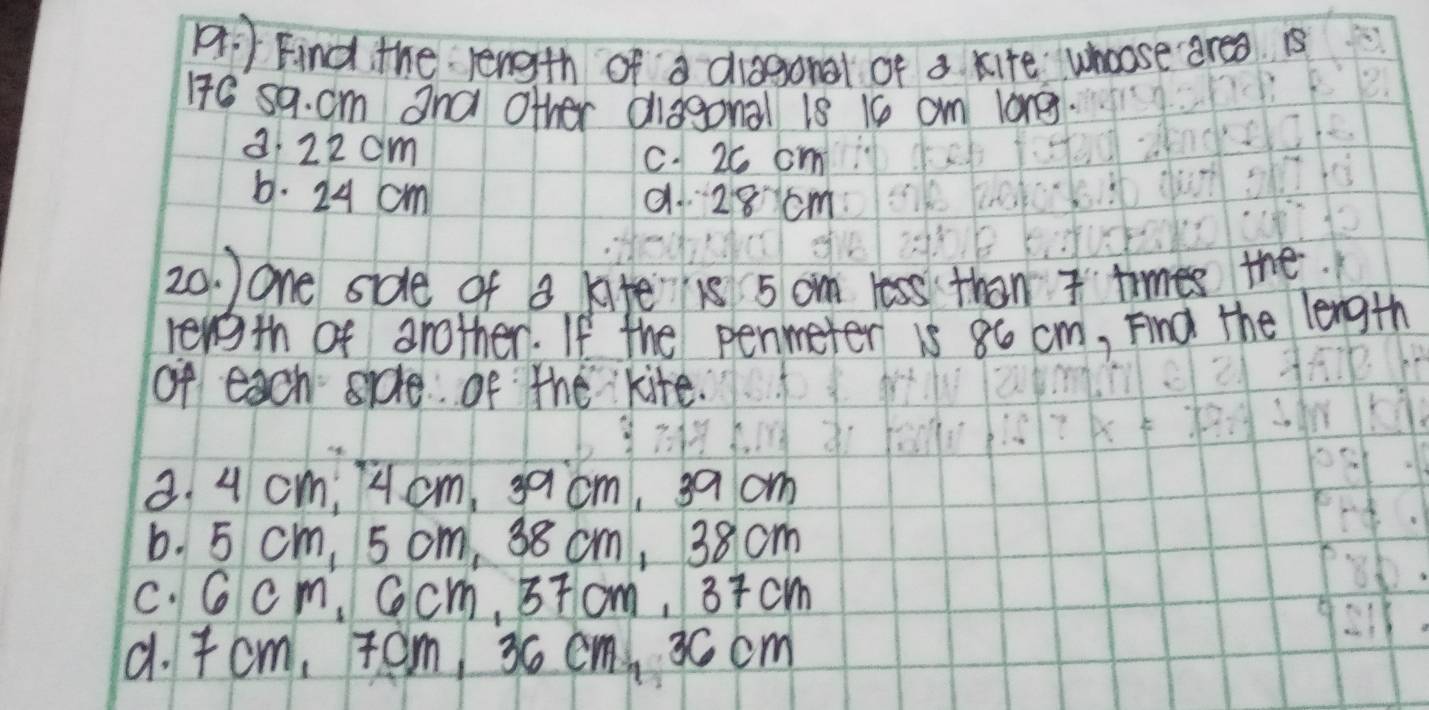 19.) Find the length of a diagonal of a kite whoose area is
176 sq.cm and other diagonal is 16 cm long.
a. 22 cm
c. 26 cm
b. 24 cm
d. 28 cm
20.) One side of a kite is 5 cm less than 7 times the
length of another. If the perimeter is 86 cm, Find the length
of each side of the kite.
a. 4 cm, 4 cm, 39 cm, 39 cm
b. 5 cm, 5 cm, 38 cm, 38 cm
c. 6 cm, 6 cm, 37 cm, 37 cm
d. 7 cm, 7 cm, 36 cm, 36 cm